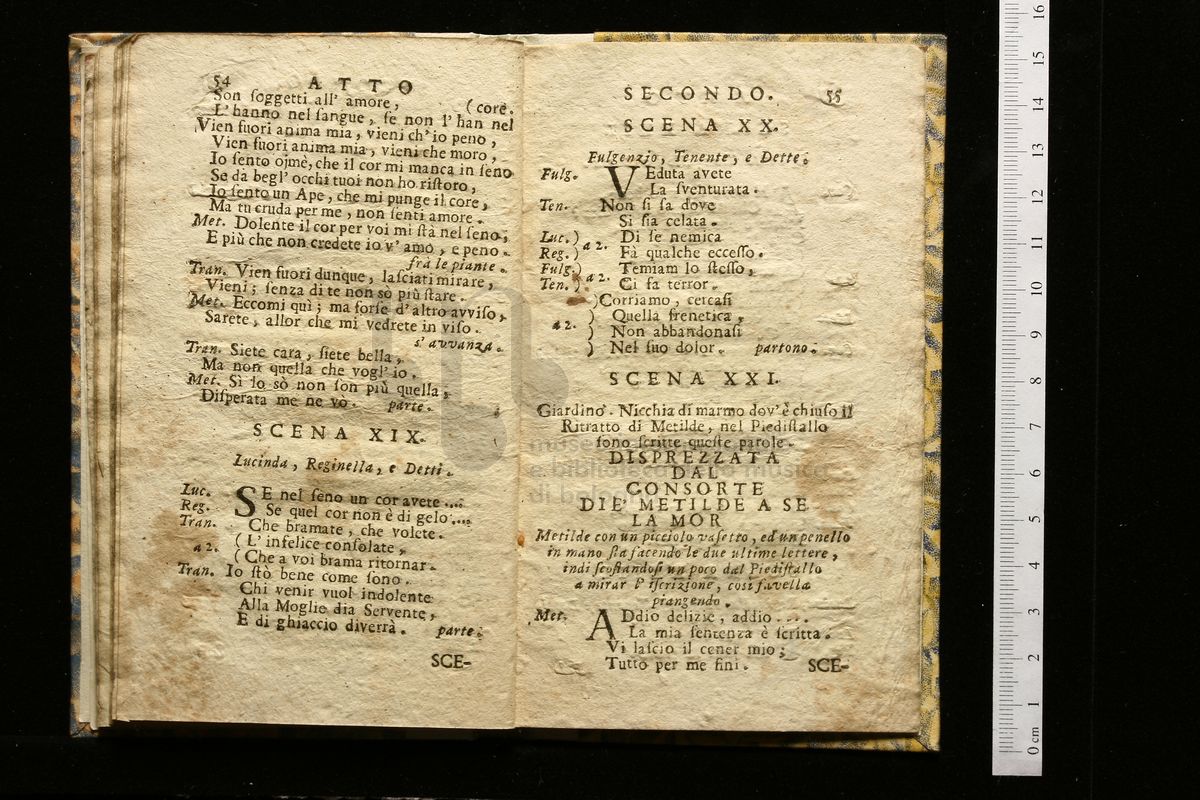 54 ATTO
Son soggetti all' amore, (core.
L'hanno nel sangue, se non l'han nel
Vien fuori anima mia, vieni ch'io peno,
Vien fuori anima mia, vieni che moro,
Io sento ojmè, che il cor mi manca in seno
Se da begl' occhi tuoi non ho ristoro,
Io sento un Ape, che mi punge il core,
Ma tu cruda per me, non senti amore.
Met. Dolente il cor per voi mi stà nel seno;
E più che non credete io v' amo, e peno.
frà le piante.
Tran. Vien fuori dunque, lasciati mirare,
Vieni; senza di te non sò più stare.
Met. Eccomi quì; ma forse d'altro avviso,
Sarete, allor che mi vedrete in viso.
s' avvanza.
Tran. Siete cara, siete bella,
Ma non quella che vogl' io.
Met. Sì lo sò non son più quella;
Disperata me ne vò. parte.
SCENA XIX.
Lucinda, Reginella, e Detti.
Luc. SE nel seno un cor avete ....
Reg. Se quel cor non è di gelo ....
Tran. Che bramate, che volete.
a 2. ( L' infelice consolate,
( Che a voi brama ritornar.
Tran. Io stò bene come sono.
Chi venir vuol indolente
Alla Moglie dia Servente,
E di ghiaccio diverrà. parte.
SCE-
SECONDO. 55
SCENA XX.
Fulgenzio, Tenente, e Dette.
Fulg. VEduta avete
La sventurata.
Ten. Non si sa dove
Si sia celata.
Luc. ) a 2. Di se nemica
Reg. ) Fà qualche eccesso.
Fulg. ) a 2. Temiam lo stesso,
Ten. ) Ci fa terror.
)Corriamo, cercasi
a 2. ) Quella frenetica,
) Non abbandonasi
) Nel suo dolor. partono.
SCENA XXI.
Giardino. Nicchia di marmo dov'è chiuso il
Ritratto di Metilde, nel Piedistallo
sono scritte queste parole.
DISPREZZATA
DAL
CONSORTE
DIE' METILDE A SE
LA MOR
Metilde con un picciolo vasetto, ed un penello
in mano sta facendo le due ultime lettere,
indi scostandosi un poco dal Piedistallo
a mirar l' iscrizione, così favella
piangendo.
Met. ADdio delizie, addio ....
La mia sentenza è scritta.
Vi lascio il cener mio;
Tutto per me finì. SCE-
0 cm 1 2 3 4 5 6 7 8 9 10 11 12 13 14 15 16